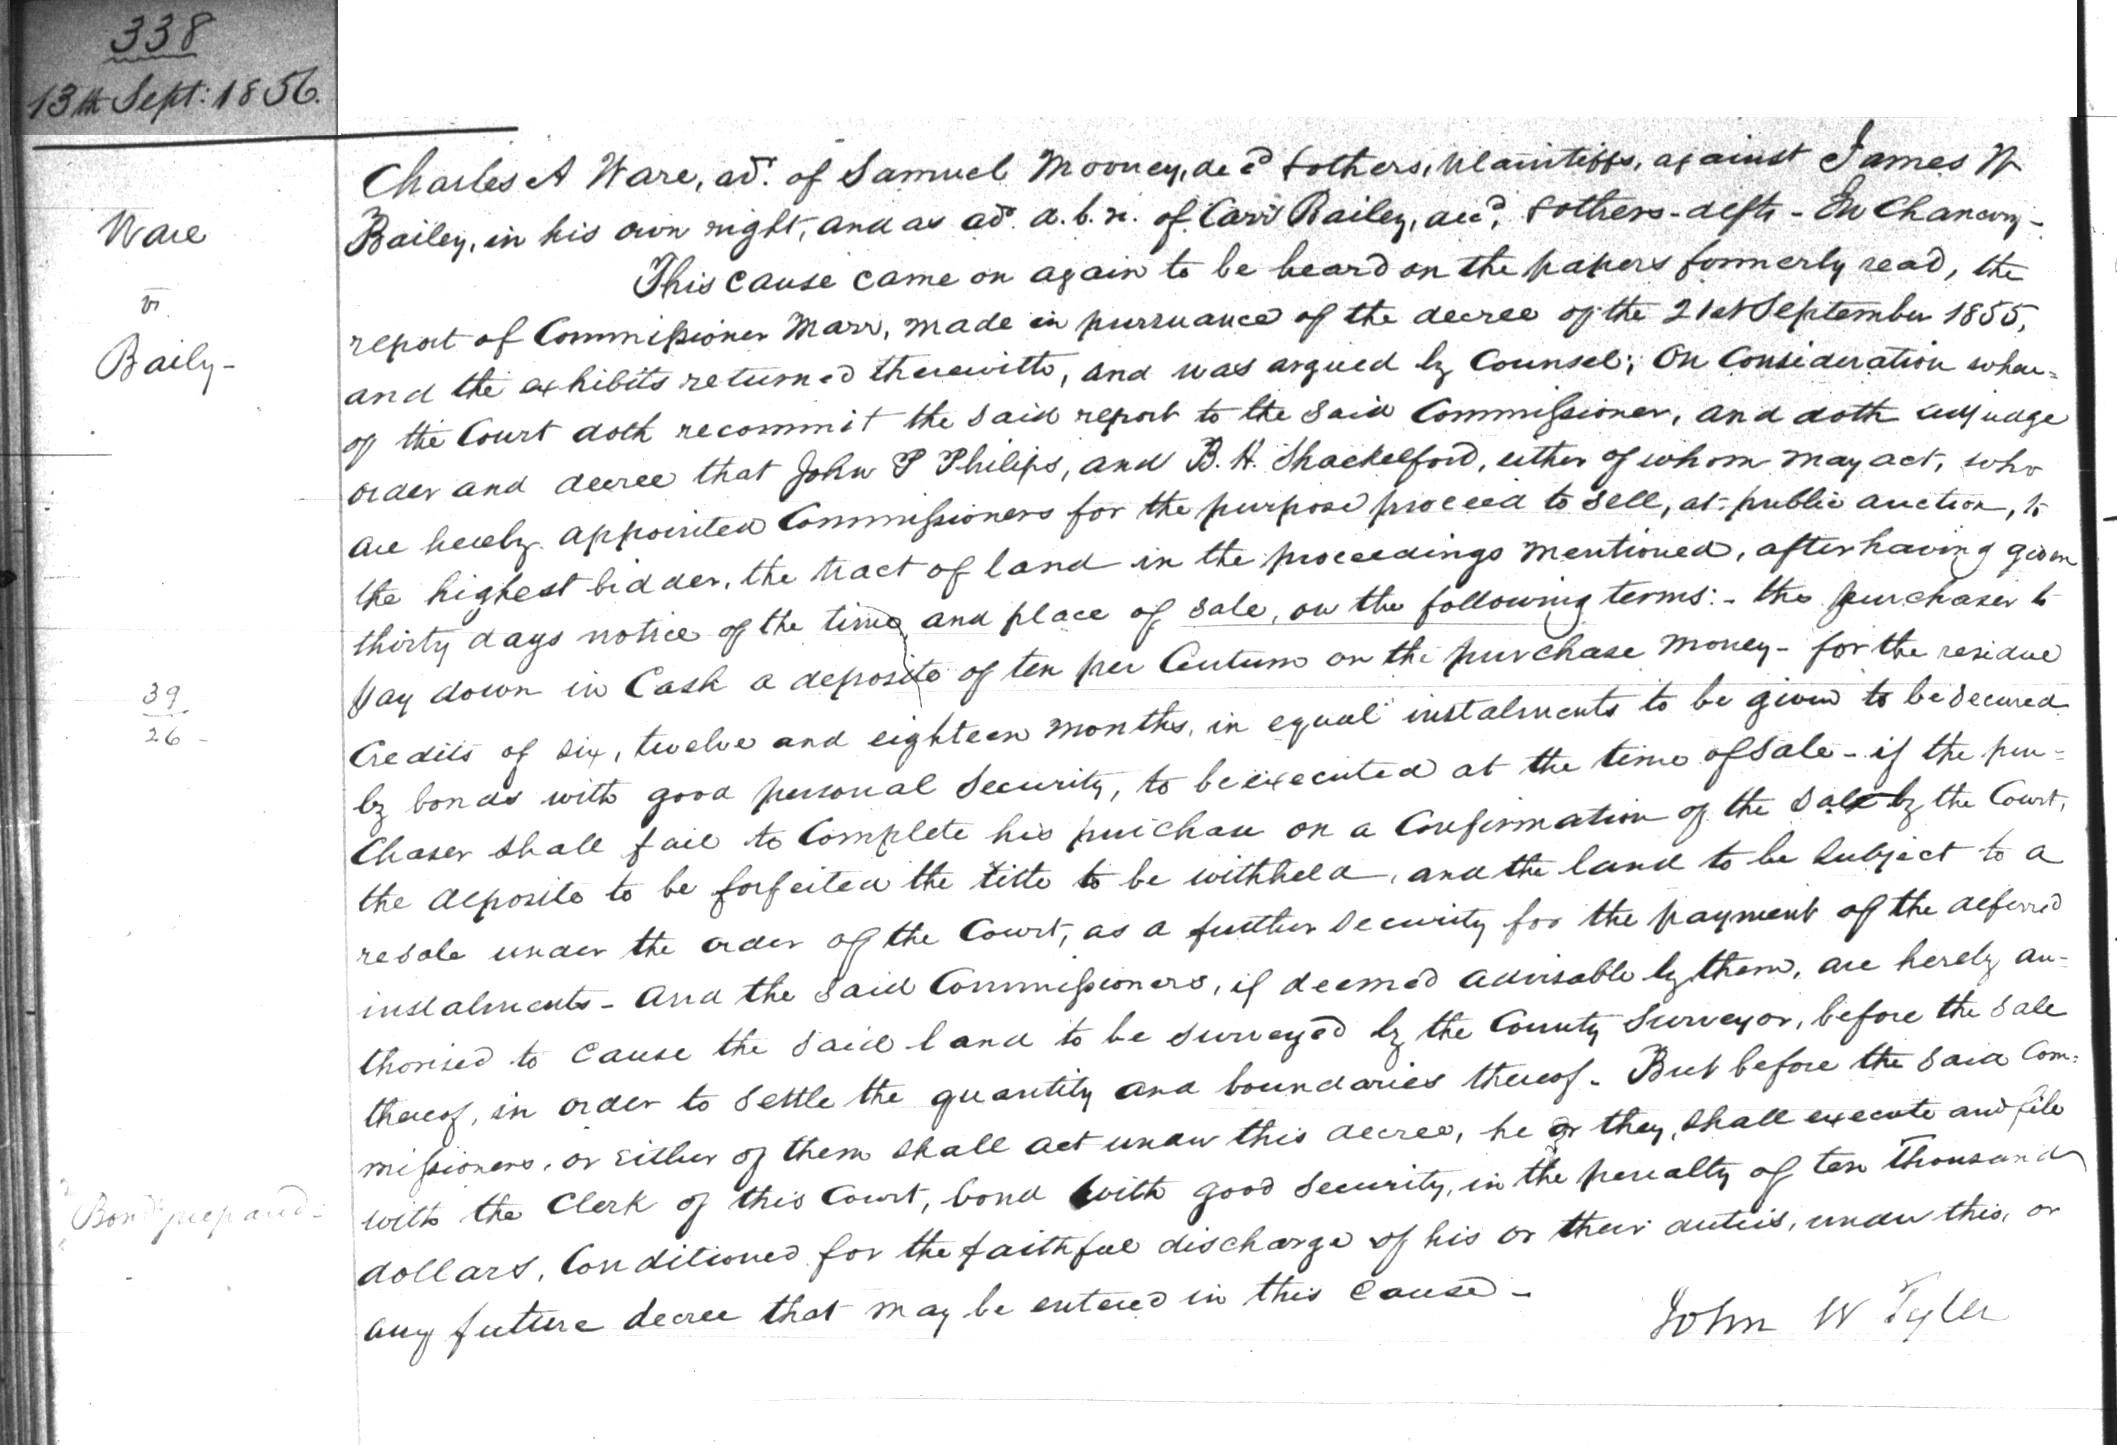 338
13th Sept: 1856.
Ware
vs
Baily-
39
26-
Bond prepared-
Charles A Ware, adr. of Samuel Mooney, decd & others, plaintiffs, against James W
Bailey, in his own right, and as adr. d. b. n. of Carr Bailey, decd, & others - defts - In Chancery -
This cause came on again to be heard on the papers formerly read, the
report of Commissioner Marr, made in pursuance of the decree of the 21st September 1855,
and the exhibits returned therewith, and was argued by Counsel; On Consideration where=
of the Court doth recommit the said report to the said Commissioner, and doth adjudge
order and decree that John P Philips, and B. H. Shackelford, either of whom may act, who
are hereby appointed Commissioners for the purpose proceed to sell, at public auction, to
the highest bidder, the tract of land in the proceedings mentioned, after having given
thirty days notice of the time, and place of sale, on the following terms: - the purchaser to
pay down in Cash a deposite of ten per Centum on the purchase money - for the residue
Credits of six, twelve and eighteen months, in equal instalments to be given to be secured
by bonds with good personal security, to be executed at the time of sale - if the pur=
chaser shall fail to Complete his purchase on a Confirmation of the sale by the Court,
the deposite to be forfeited the title to be withheld, and the land to be subject to a
resale under the order of the Court, as a further security for the payment of the deferred
instalments - And the said Commissioners, if deemed advisable by them, are hereby au=
thorised to cause the said land to be surveyed by the County Surveyor, before the sale
thereof, in order to settle the quantity and boundaries thereof - But before the said Com=
missioners, or either of them shall act under this decree, he or they, shall execute and file
with the Clerk of this Court, bond with good security, in the penalty of ten Thousand
dollars, Conditioned for the faithful discharge of his or their duties, under this, or
any future decree that may be entered in this Cause -
John W Tyler